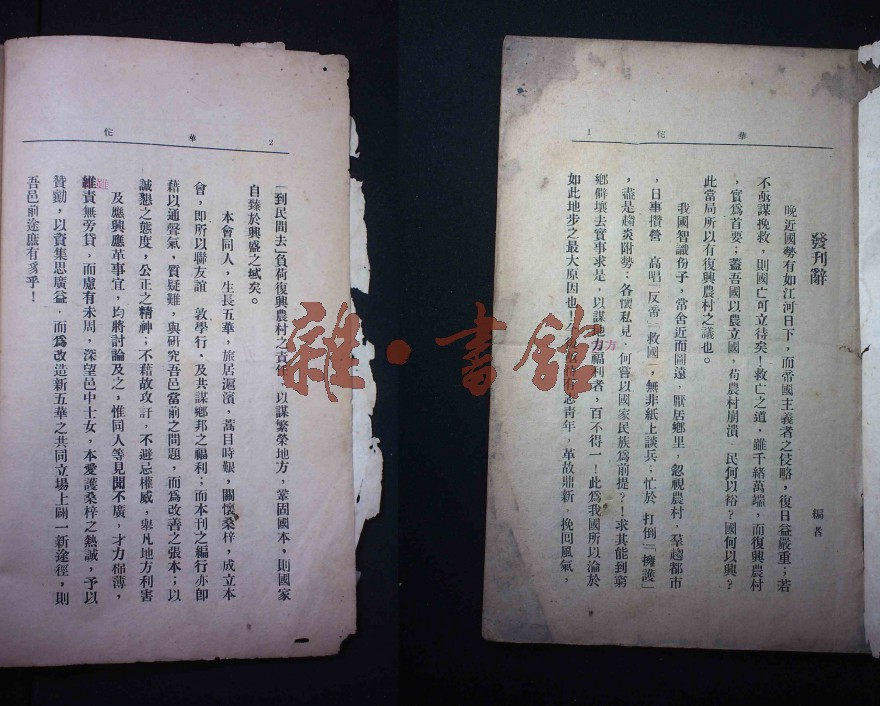 華佗 1
發刊辭
編者
晚近國勢有如江河日下，而帝國主義者之侵略，復日益嚴重；若
不亟謀挽救，則國亡可立待矣！救亡之道，雖千緒萬端，而復興農村
，實爲首要；蓋吾國以農立國，苟農村崩潰，民何以裕？國何以興？
此當局所以有復興農村之議也。
我國智識份子，常舍近而圖遠，厭居鄉里，忽視農村，羣趨都市
，日事攢營，高唱「反帝」「救國」，無非紙上談兵；忙於「打倒」「擁護」
，盡是趨炎附勢；各懷私見，何嘗以國家民族爲前提？！求其能到窮
鄉僻壤去實事求是，以謀地方福利者，百不得一！此爲我國所以淪於
如此地步之最大原因也！有志靑年，革故鼎新，挽回風氣，
2 華佗
（到民間去）負荷復興農村之責任，以謀繁榮地方，鞏固國本，則國家
自臻於興盛之域矣。
本會同人，生長五華，旅居滬濱，蒿目時艱，關懷桑梓，成立本
會，即所以聯友誼，敦學行，及共謀鄉邦之福利；而本刊之編行亦卽
藉以通聲氣，質疑難，與研究吾邑當前之問題，而爲改善之張本；以
誠懇之態度，公正之精神；不藉故攻訐，不避忌權威，舉凡地方利害
及應興應革事宜，均將討論及之，惟同人等見聞不廣，才力棉薄，
維責無旁貸，而慮有未周，深望邑中士女，本愛護桑梓之熱誠，予以
贊勷，以資集思廣益，而爲改造新五華之共同立場上闢一新途徑，則
吾邑前途庶有豸乎！
雜·書館